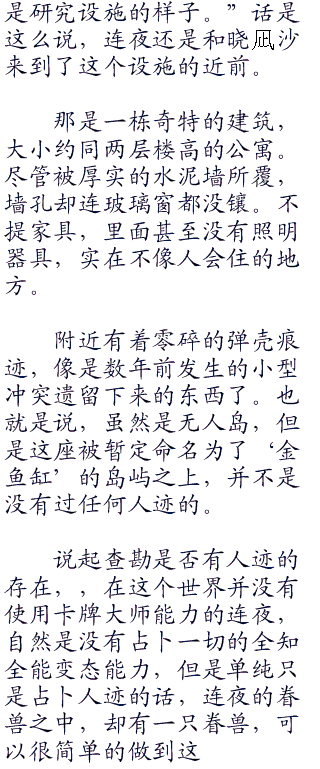 是研究设施的样子。”话是
这么说，连夜还是和晓凪沙
来到了这个设施的近前。
那是一栋奇特的建筑，
大小约同两层楼高的公寓。
尽管被厚实的水泥墙所覆，
墙孔却连玻璃窗都没镶。不
提家具，里面甚至没有照明
器具，实在不像人会住的地
方。
附近有着零碎的弹壳痕
迹，像是数年前发生的小型
冲突遗留下来的东西了。也
就是说，虽然是无人岛，但
是这座被暂定命名为了‘金
鱼缸’的岛屿之上，并不是
没有过任何人迹的。
说起查勘是否有人迹的
存在，，在这个世界并没有
使用卡牌大师能力的连夜，
自然是没有占卜一切的全知
全能变态能力，但是单纯只
是占卜人迹的话，连夜的眷
兽之中，却有一只眷兽，可
以很简单的做到这